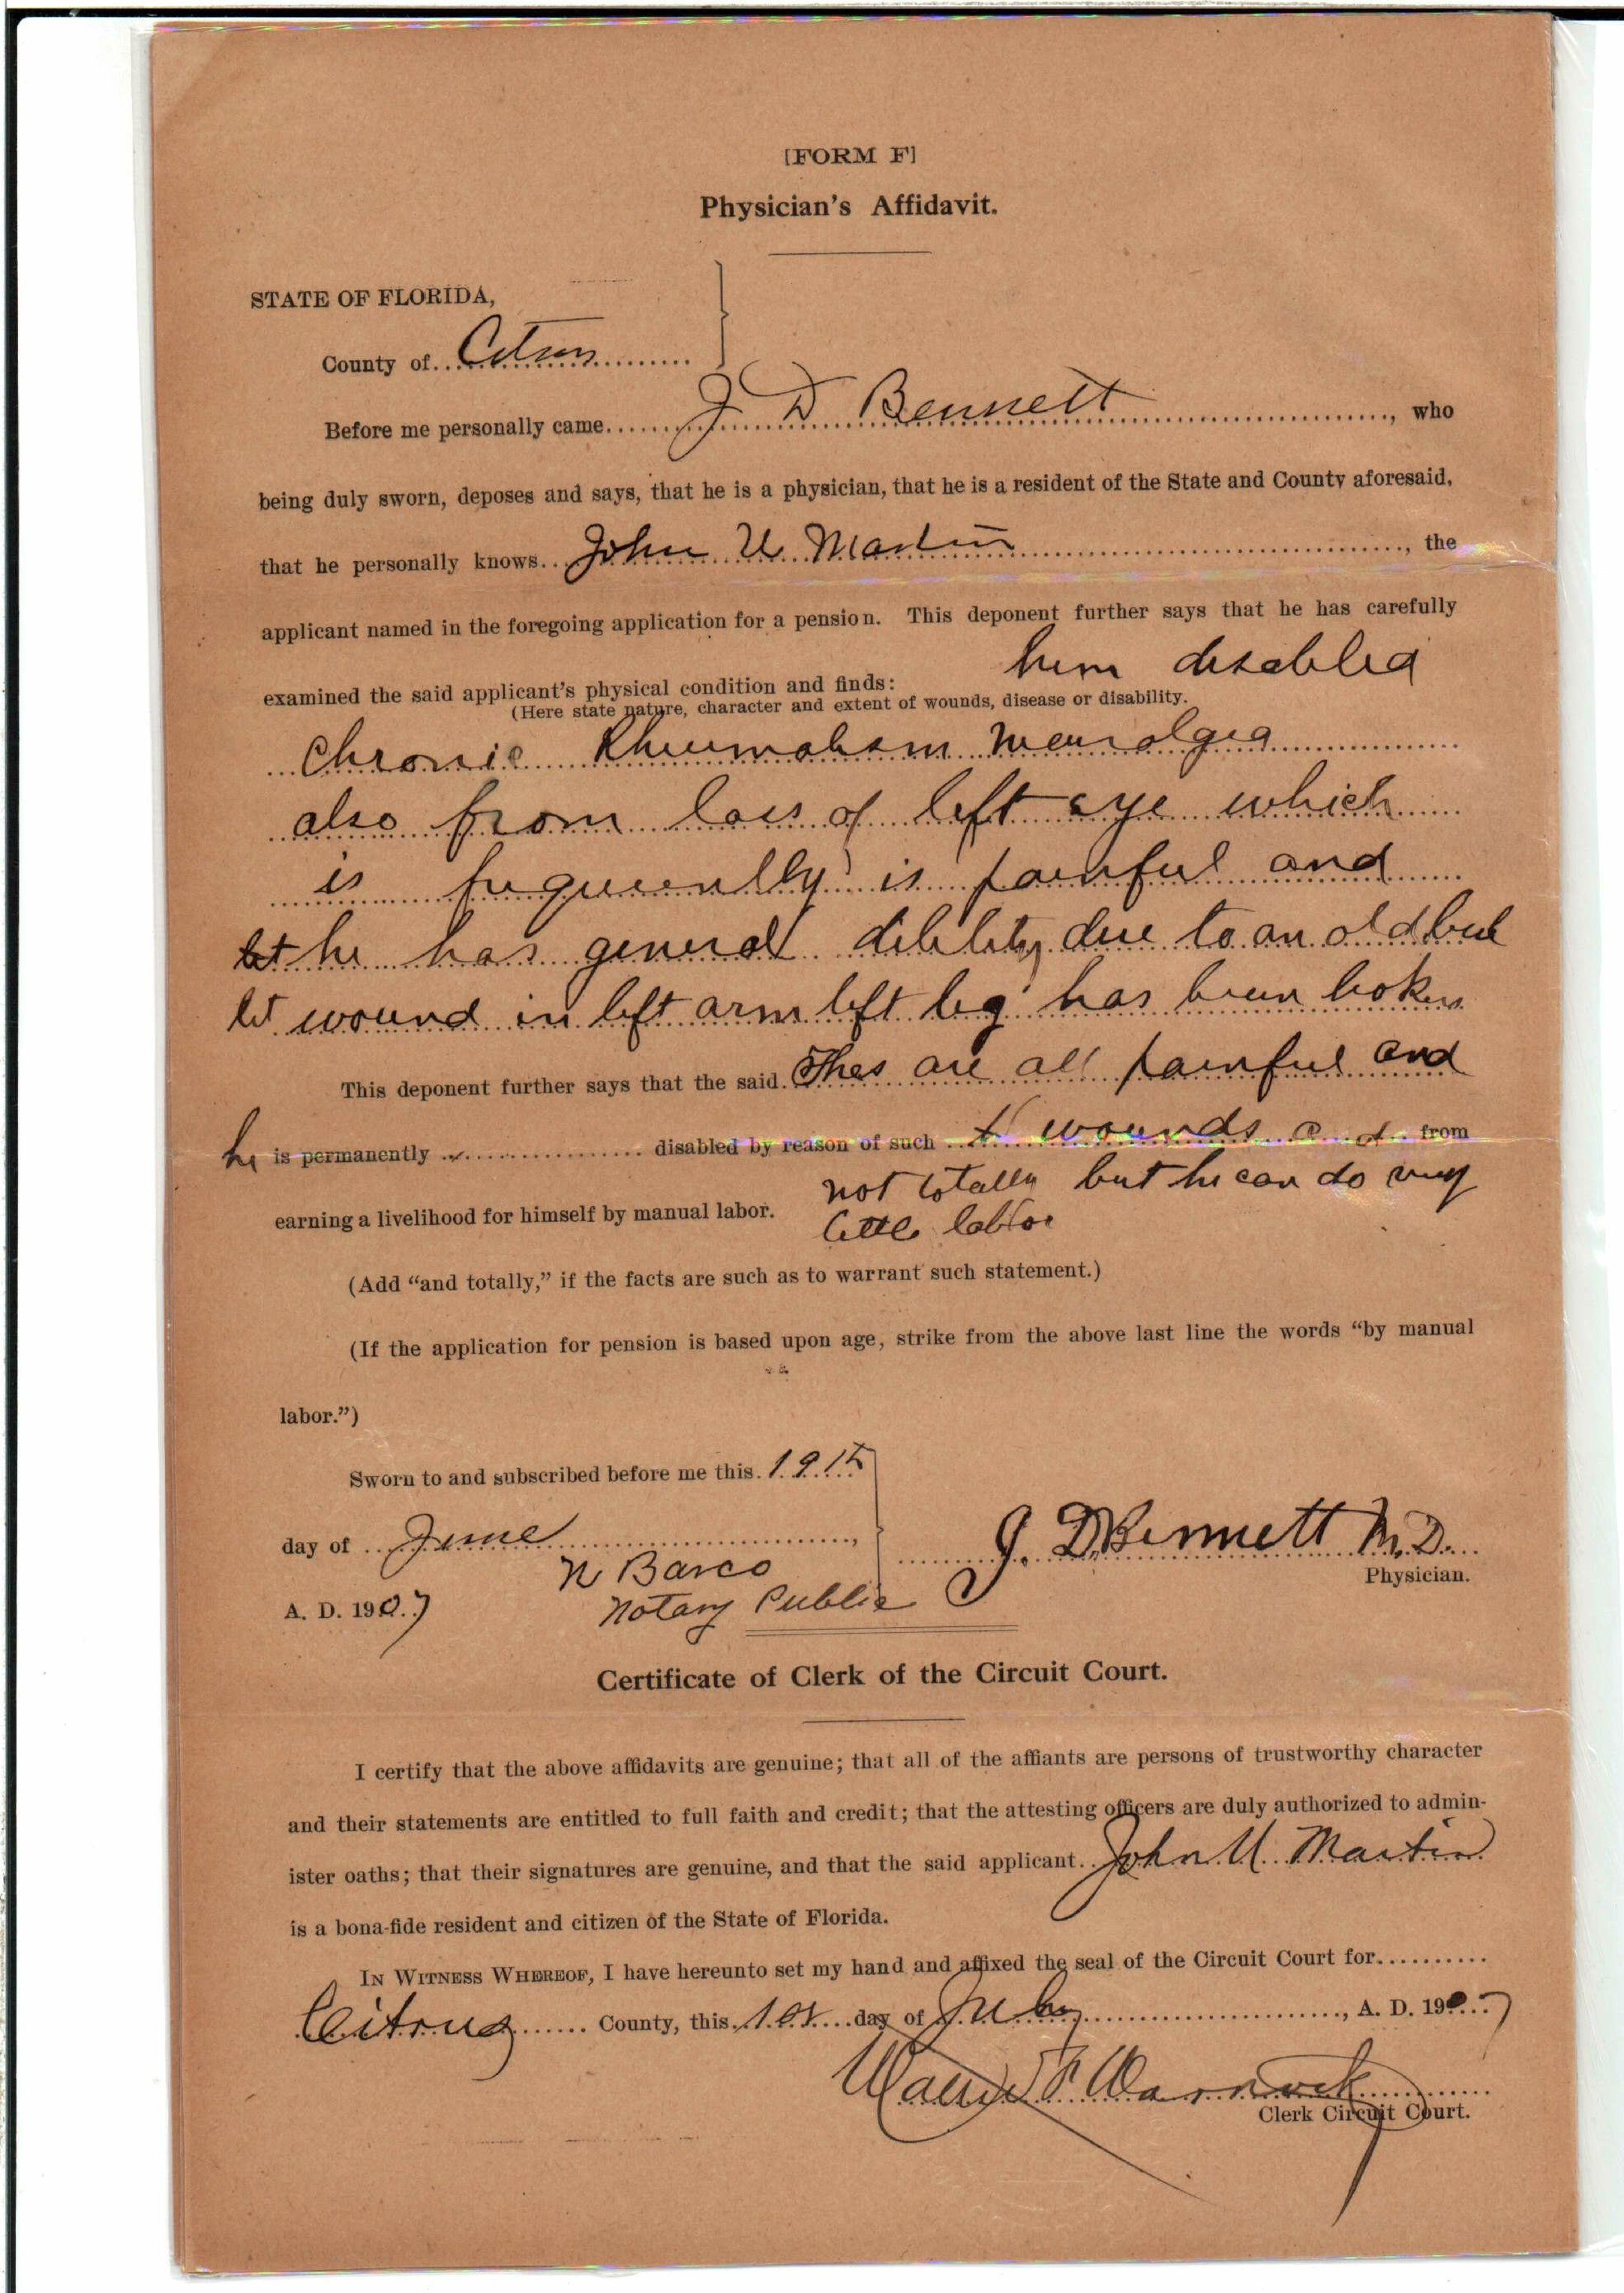 [FORM F]
Physician's Affidavit.
STATE OF FLORIDA,
County of Citrus
Before me personally came J D Bennett, who
being duly sworn, deposes and says, that he is a physician, that he is a resident of the State and County aforesaid,
that he personally knows John U Martin, the
applicant named in the foregoing application for a pension. This deponent further says that he has carefully
examined the said applicant's physical condition and finds: him disabled
(Here state nature, character and extent of wounds, disease or disability.
Chronic Rheumatism Neuralgia
also from loss of left eye which
is frequently is painful and
he has general dibility due to an old bul
let wound in left arm left leg has been boken
This deponent further says that the said Thes are all painful and
he is permanently disabled by reason of such wounds and from
earning a livelihood for himself by manual labor. not totally but he can do very
little labor
(Add "and totally," if the facts are such as to warrant such statement.)
(If the application for pension is based upon age, strike from the above last line the words "by manual
labor.")
Sworn to and subscribed before me this 19th
day of June,
N Barco
J. D. Bennett M.D.
Physician.
A. D. 1907
Notary Public
Certificate of Clerk of the Circuit Court.
I certify that the above affidavits are genuine; that all of the affiants are persons of trustworthy character
and their statements are entitled to full faith and credit; that the attesting officers are duly authorized to admin-
ister oaths; that their signatures are genuine, and that the said applicant John U. Martin
is a bona-fide resident and citizen of the State of Florida.
IN WITNESS WHEREOF, I have hereunto set my hand and affixed the seal of the Circuit Court for
Citrus County, this 1st day of July, A. D. 1907
Walter F Warnock
Clerk Circuit Court.